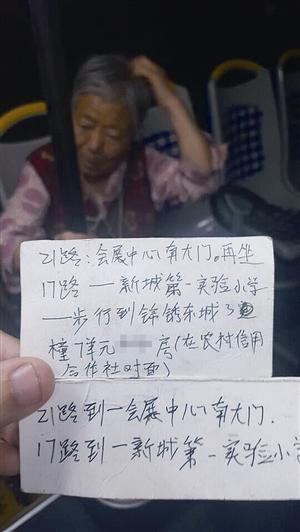 21路:会展中心南大门。再坐
17路—新城第一实验小学
—步行到锦绣东城3
橦7单元 房(在农村信用
合作社对面)
21路到一会展中心南大门.
17路到一新城第一实验小学